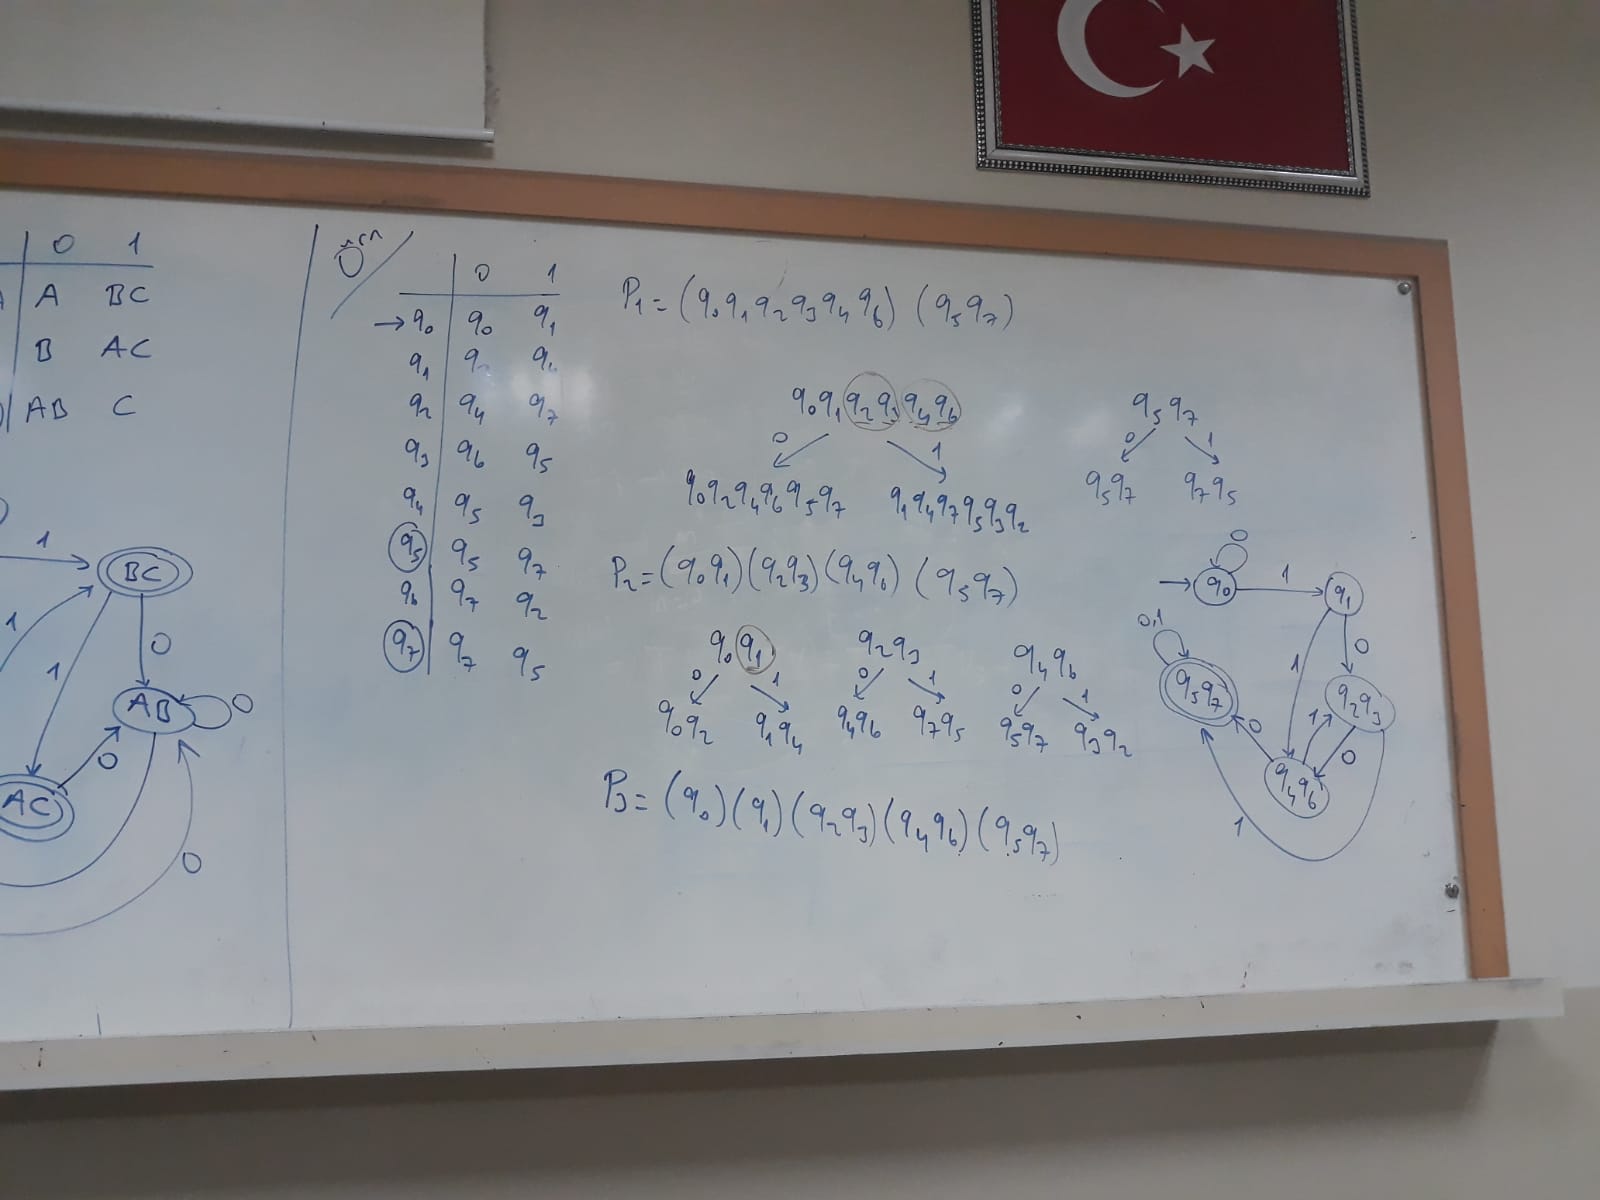 0 1
A BC
B AC
AB C
1
BC
1
1
0
AB
0
0
AC
0
Örn
0 1
→q₀ q₀ q₁
q₁
q₂ q₄ q₇
q₃ q₆ q₅
q₄ q₅ q₃
q₅ q₅ q₇
q₆ q₇ q₂
q₇ q₇ q₅
P₁=(q₀q₁q₂q₃q₄q₆)(q₅q₇)
q₀q₁q₂q₃q₄q₆
0 1
q₀q₂q₄q₆q₅q₇ q₁q₄q₇q₅q₃q₂
q₅q₇
0 1
q₅q₇ q₇q₅
P₂=(q₀q₁)(q₂q₃)(q₄q₆)(q₅q₇)
q₀q₁ q₂q₃ q₄q₆
0 1 0 1 0 1
q₀q₂ q₁q₄ q₄q₆ q₇q₅ q₅q₇ q₃q₂
P₃=(q₀)(q₁)(q₂q₃)(q₄q₆)(q₅q₇)
0
q₀ 1 q₁
0,1
1 0
q₅q₇ q₂q₃
0 1 0
q₄q₆
1